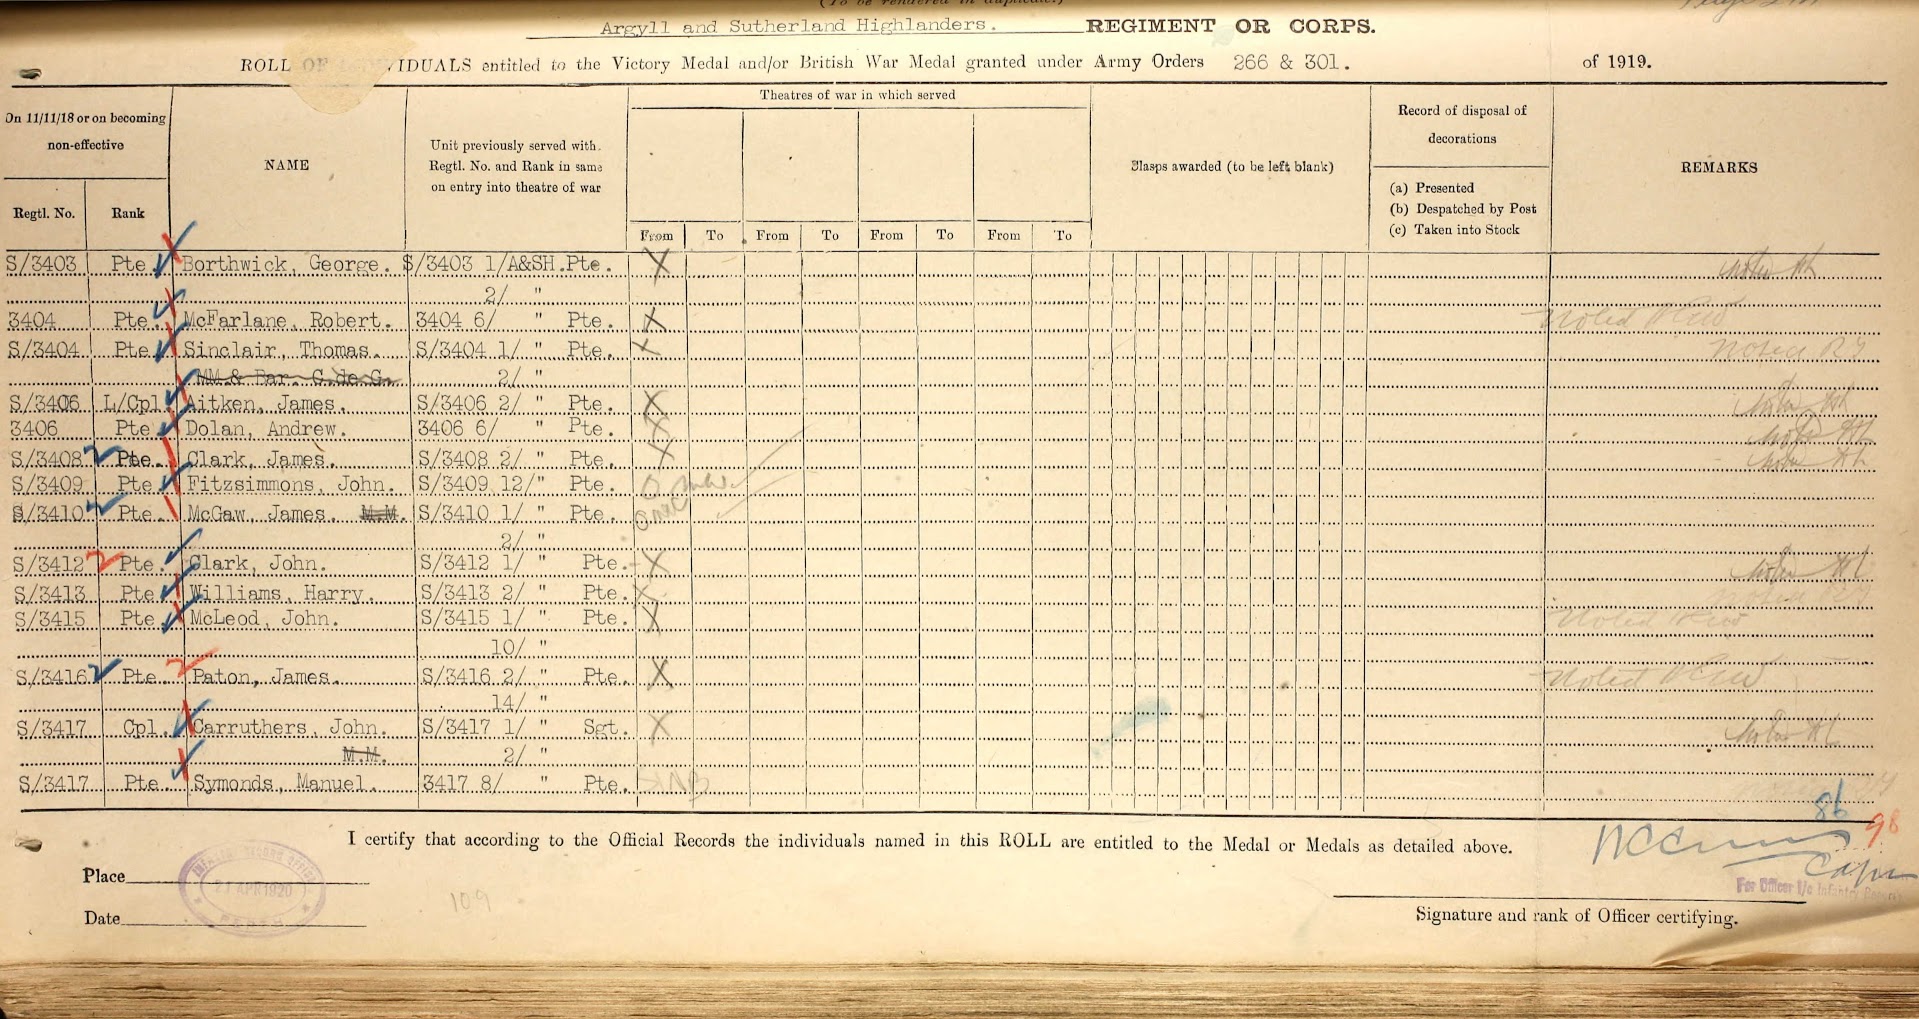 (To be rendered in duplicate.)
Argyll and Sutherland Highlanders. REGIMENT OR CORPS.
ROLL OF INDIVIDUALS entitled to the Victory Medal and/or British War Medal granted under Army Orders 266 & 301. of 1919.
On 11/11/18 or on becoming non-effective
Regtl. No.
Rank
NAME
Unit previously served with.
Regtl. No. and Rank in same
on entry into theatre of war
Theatres of war in which served
From To From To From To From To
Clasps awarded (to be left blank)
Record of disposal of
decorations
(a) Presented
(b) Despatched by Post
(c) Taken into Stock
REMARKS
S/3403 Pte. Borthwick, George. S/3403 1/A&SH.Pte. X
2/ "
3404 Pte. McFarlane, Robert. 3404 6/ " Pte. X Noted
S/3404 Pte. Sinclair, Thomas. S/3404 1/ " Pte. X Noted
MM & Bar. C.de G. 2/ "
S/3406 L/Cpl. Aitken, James. S/3406 2/ " Pte. X
3406 Pte. Dolan, Andrew. 3406 6/ " Pte. X
S/3408 Pte. Clark, James. S/3408 2/ " Pte. X
S/3409 Pte. Fitzsimmons, John. S/3409 12/" Pte.
S/3410 Pte. McGaw, James. M.M. S/3410 1/ " Pte.
2/ "
S/3412 Pte. Clark, John. S/3412 1/ " Pte. X
S/3413 Pte. Williams, Harry. S/3413 2/ " Pte. X
S/3415 Pte. McLeod, John. S/3415 1/ " Pte. X Noted
10/ "
S/3416 Pte. Paton, James. S/3416 2/ " Pte. X Noted
14/ "
S/3417 Cpl. Carruthers, John. S/3417 1/ " Sgt. X
M.M. 2/ "
S/3417 Pte. Symonds, Manuel. 3417 8/ " Pte.
86
98
I certify that according to the Official Records the individuals named in this ROLL are entitled to the Medal or Medals as detailed above.
Place
INFANTRY RECORD OFFICE
21 APR 1920
PERTH
Date
109
For Officer i/c Infantry Records
Signature and rank of Officer certifying.